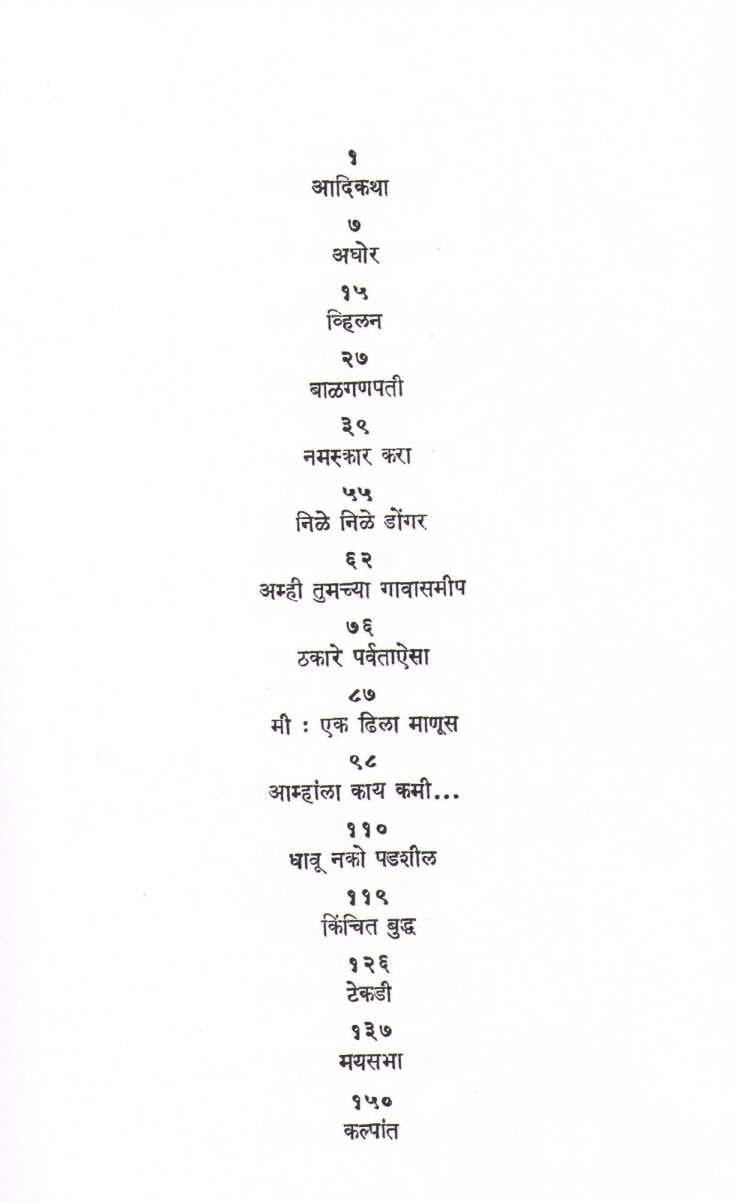 १
आदिकथा
७
अघोर
१५
व्हिलन
२७
बाळगणपती
३९
नमस्कार करा
५५
निळे निळे डोंगर
६२
अम्ही तुमच्या गावासमीप
७६
ठकारे पर्वताऐसा
८७
मी : एक ढिला माणूस
९८
आम्हांला काय कमी...
११०
धावू नको पडशील
११९
किंचित बुद्ध
१२६
टेकडी
१३७
मयसभा
१५०
कल्पांत